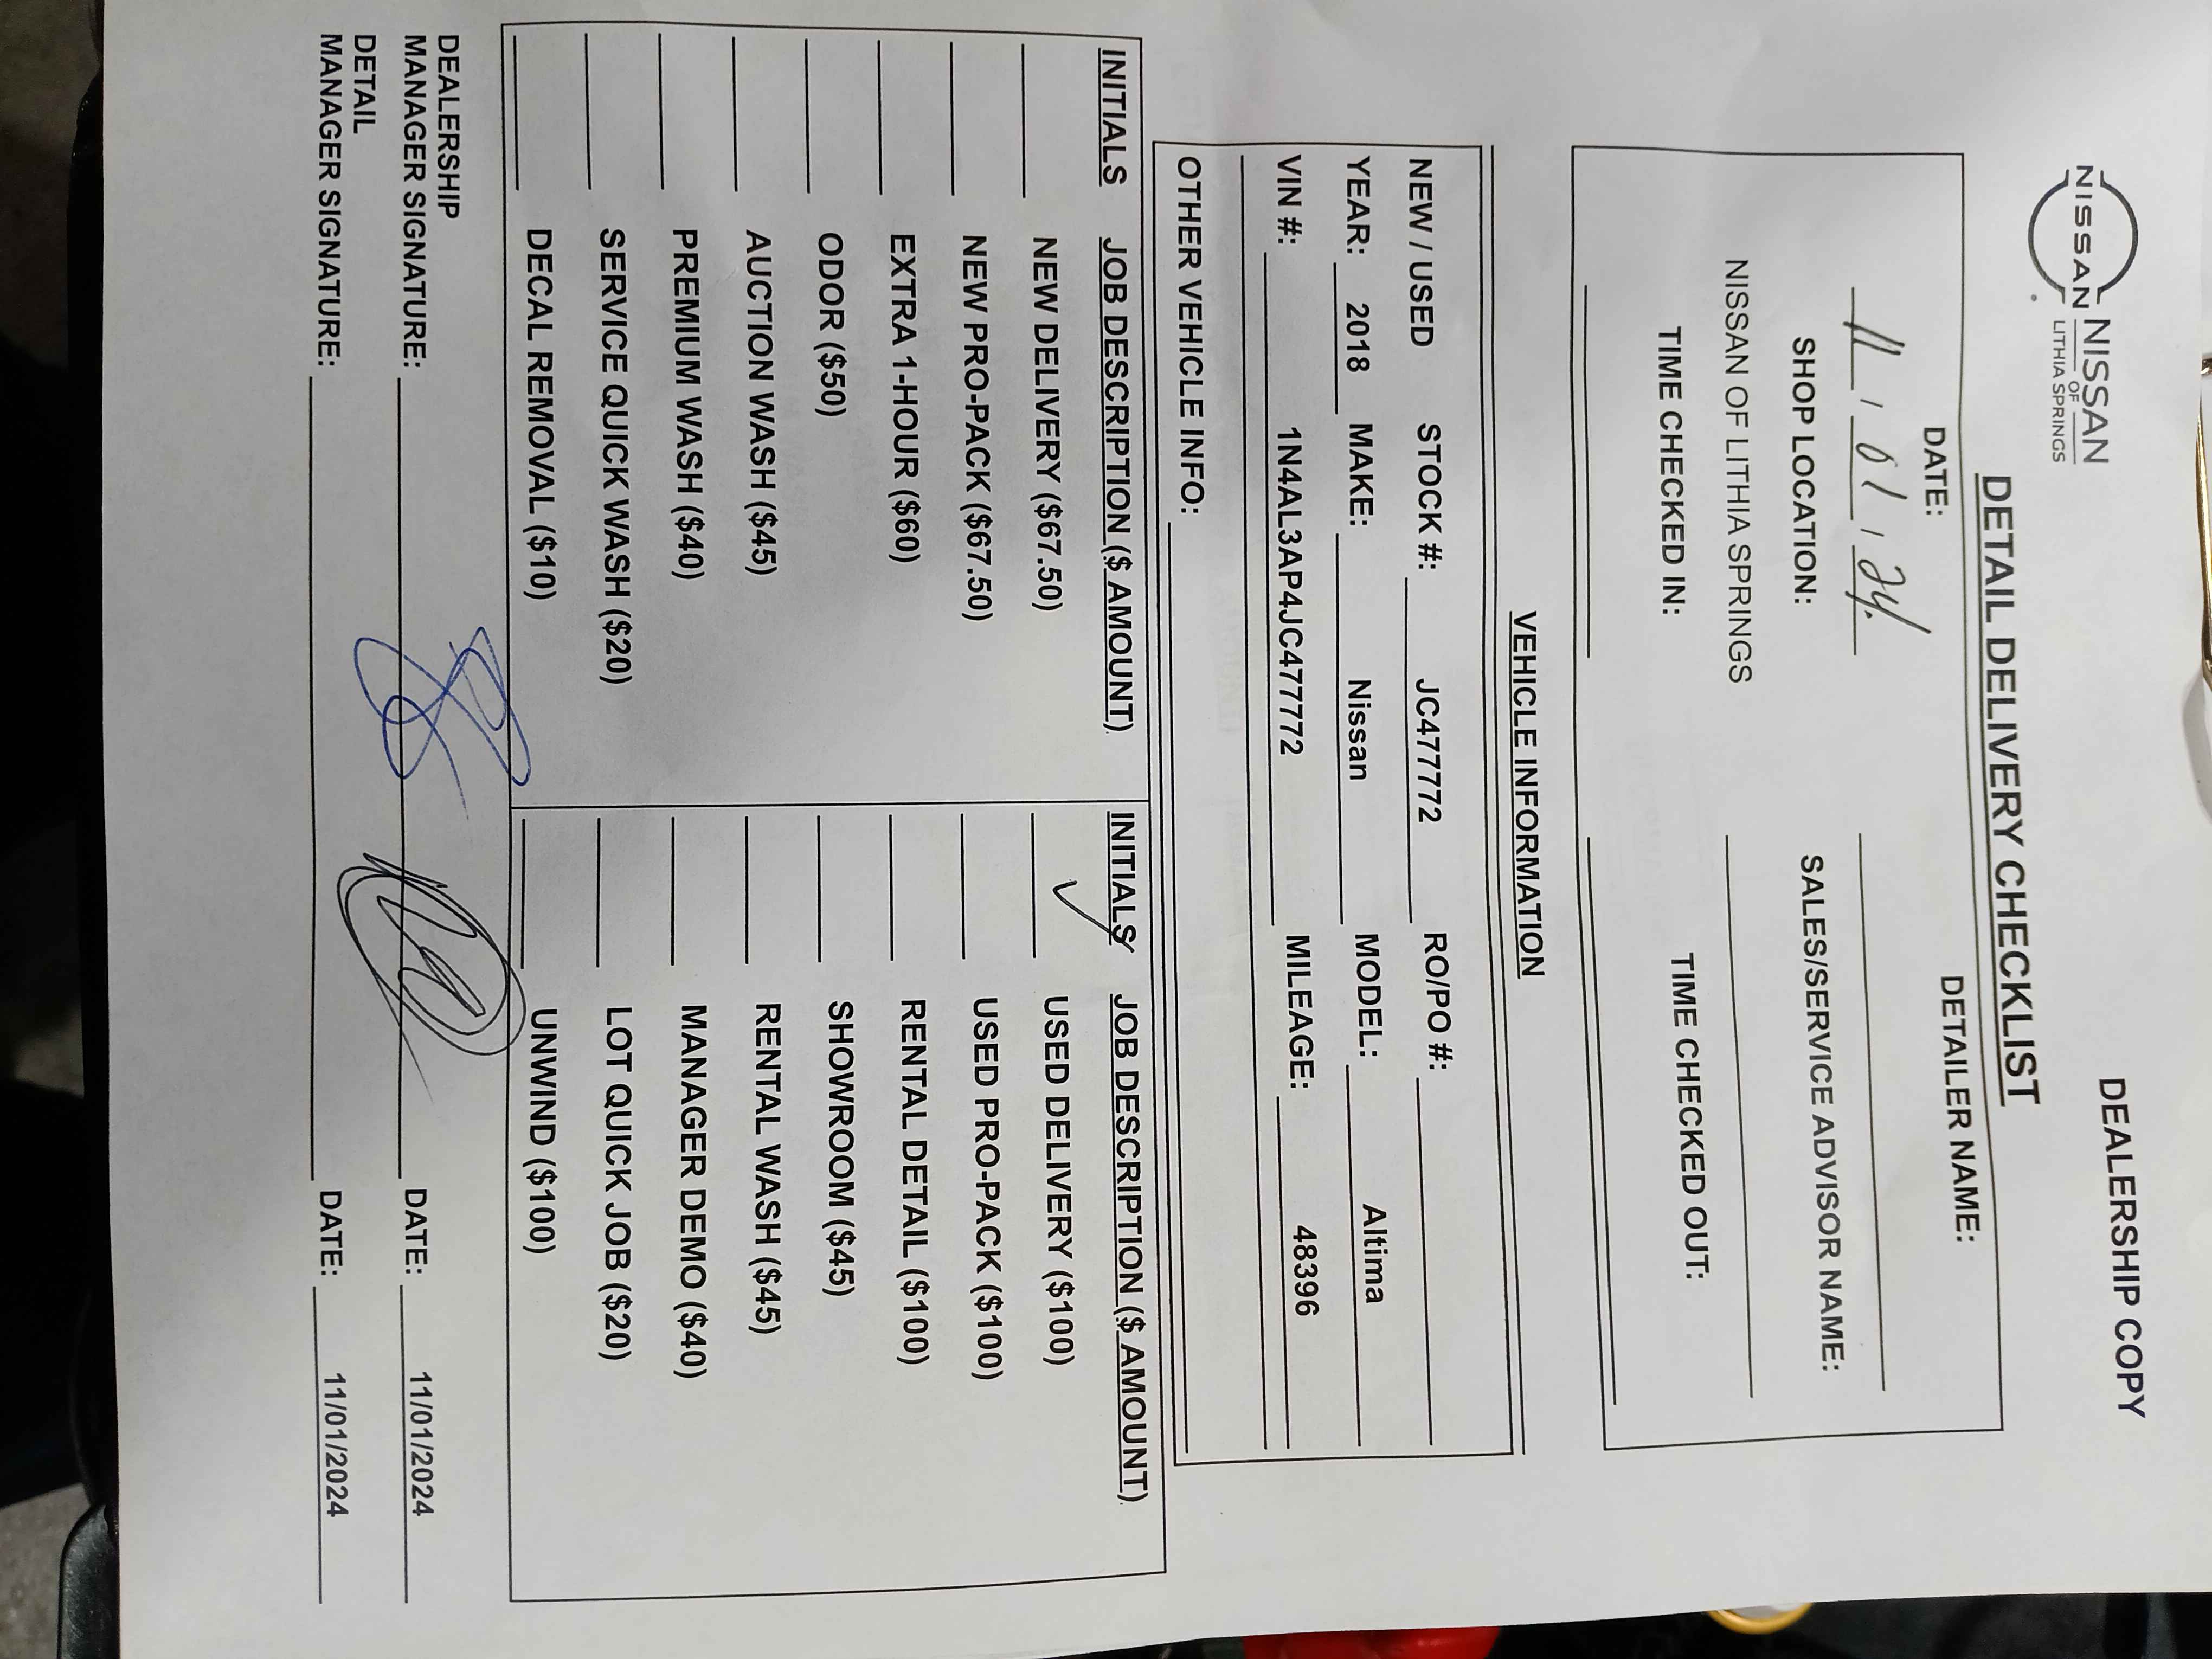 DEALERSHIP COPY
NISSAN
NISSAN
OF
LITHIA SPRINGS
DETAIL DELIVERY CHECKLIST
DATE: DETAILER NAME:
11 / 01 / 24
SHOP LOCATION: SALES/SERVICE ADVISOR NAME:
NISSAN OF LITHIA SPRINGS
TIME CHECKED IN: TIME CHECKED OUT:
VEHICLE INFORMATION
NEW / USED STOCK #: JC477772 RO/PO #:
YEAR: 2018 MAKE: Nissan MODEL: Altima
VIN #: 1N4AL3AP4JC477772 MILEAGE: 48396
OTHER VEHICLE INFO:
INITIALS JOB DESCRIPTION ($ AMOUNT) INITIALS JOB DESCRIPTION ($ AMOUNT)
NEW DELIVERY ($67.50) ✓ USED DELIVERY ($100)
NEW PRO-PACK ($67.50) USED PRO-PACK ($100)
EXTRA 1-HOUR ($60) RENTAL DETAIL ($100)
ODOR ($50) SHOWROOM ($45)
AUCTION WASH ($45) RENTAL WASH ($45)
PREMIUM WASH ($40) MANAGER DEMO ($40)
SERVICE QUICK WASH ($20) LOT QUICK JOB ($20)
DECAL REMOVAL ($10) UNWIND ($100)
DEALERSHIP
MANAGER SIGNATURE: DATE: 11/01/2024
DETAIL
MANAGER SIGNATURE: DATE: 11/01/2024